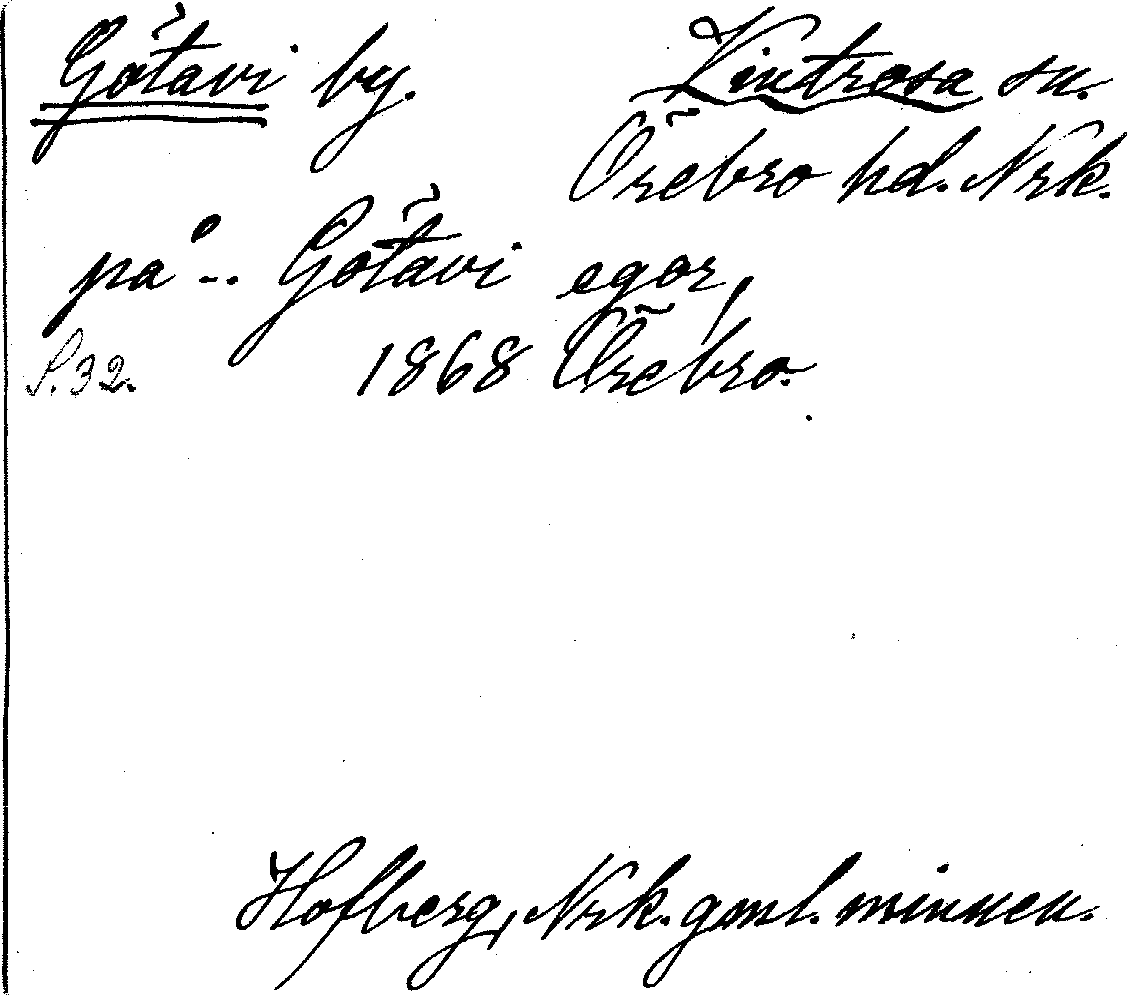 Götavi by. Vintrosa sn.
Örebro hd. Nrk.
på -- Götavi egor,
S. 32. 1868 Örebro.
Hofberg, Nrk. gml. minnen.